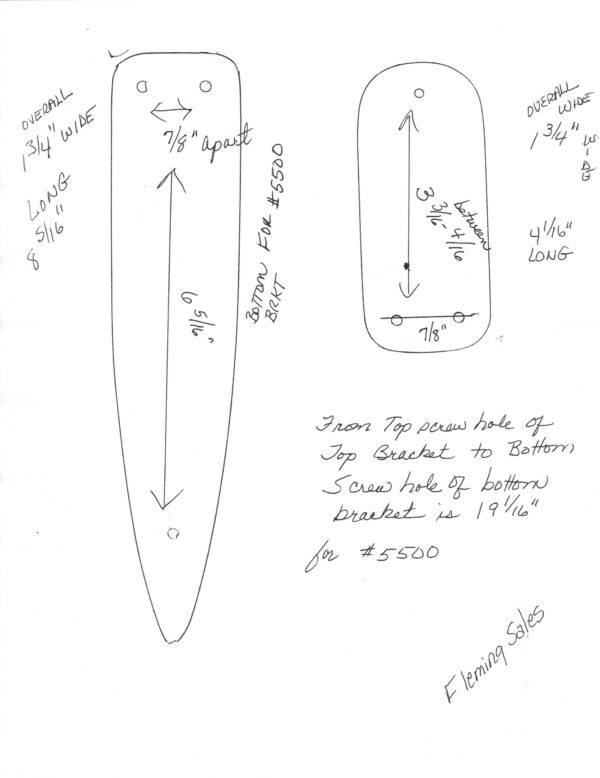 OVERALL
1 3/4" WIDE
LONG
8 5/16"
7/8" apart
6 5/16"
BOTTOM FOR #5500
BRKT
OVERALL
WIDE
1 3/4" WIDE
4 1/16"
LONG
3 3/16"
between
4/16
7/8"
From Top screw hole of
Top Bracket to Bottom
Screw hole of bottom
bracket is 19 1/16"
for #5500
Fleming Sales